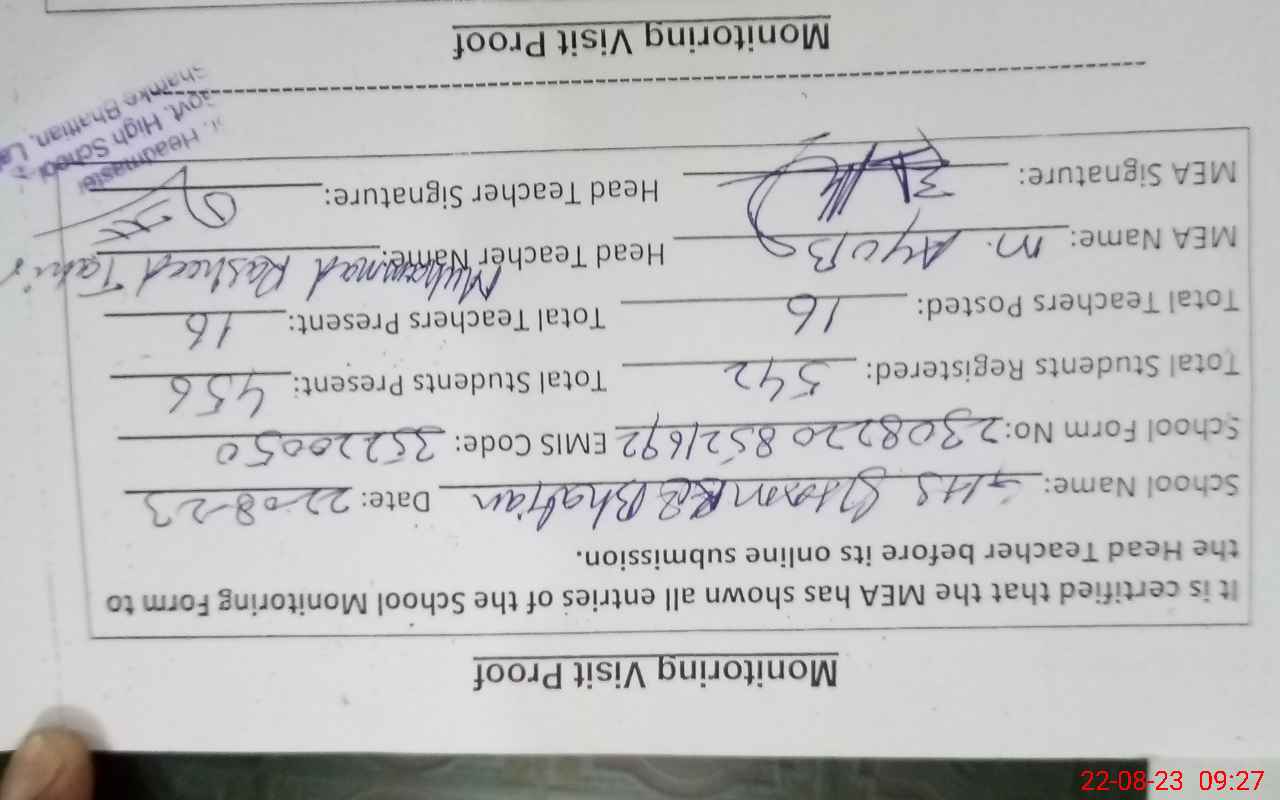 Monitoring Visit Proof
It is certified that the MEA has shown all entries of the School Monitoring Form to
the Head Teacher before its online submission.
School Name: GHS Shamke Bhattian Date: 22-08-23
School Form No: 2308220 8521692 EMIS Code: 35220050
Total Students Registered: 542 Total Students Present: 456
Total Teachers Posted: 16 Total Teachers Present: 16
MEA Name: M. AyuB Head Teacher Name: Muhammad Rasheed Tahir
MEA Signature: Head Teacher Signature:
Headmaster
Govt. High School
Shamke Bhattian, La
Monitoring Visit Proof
22-08-23 09:27